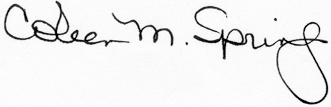 Coleen M. Spring